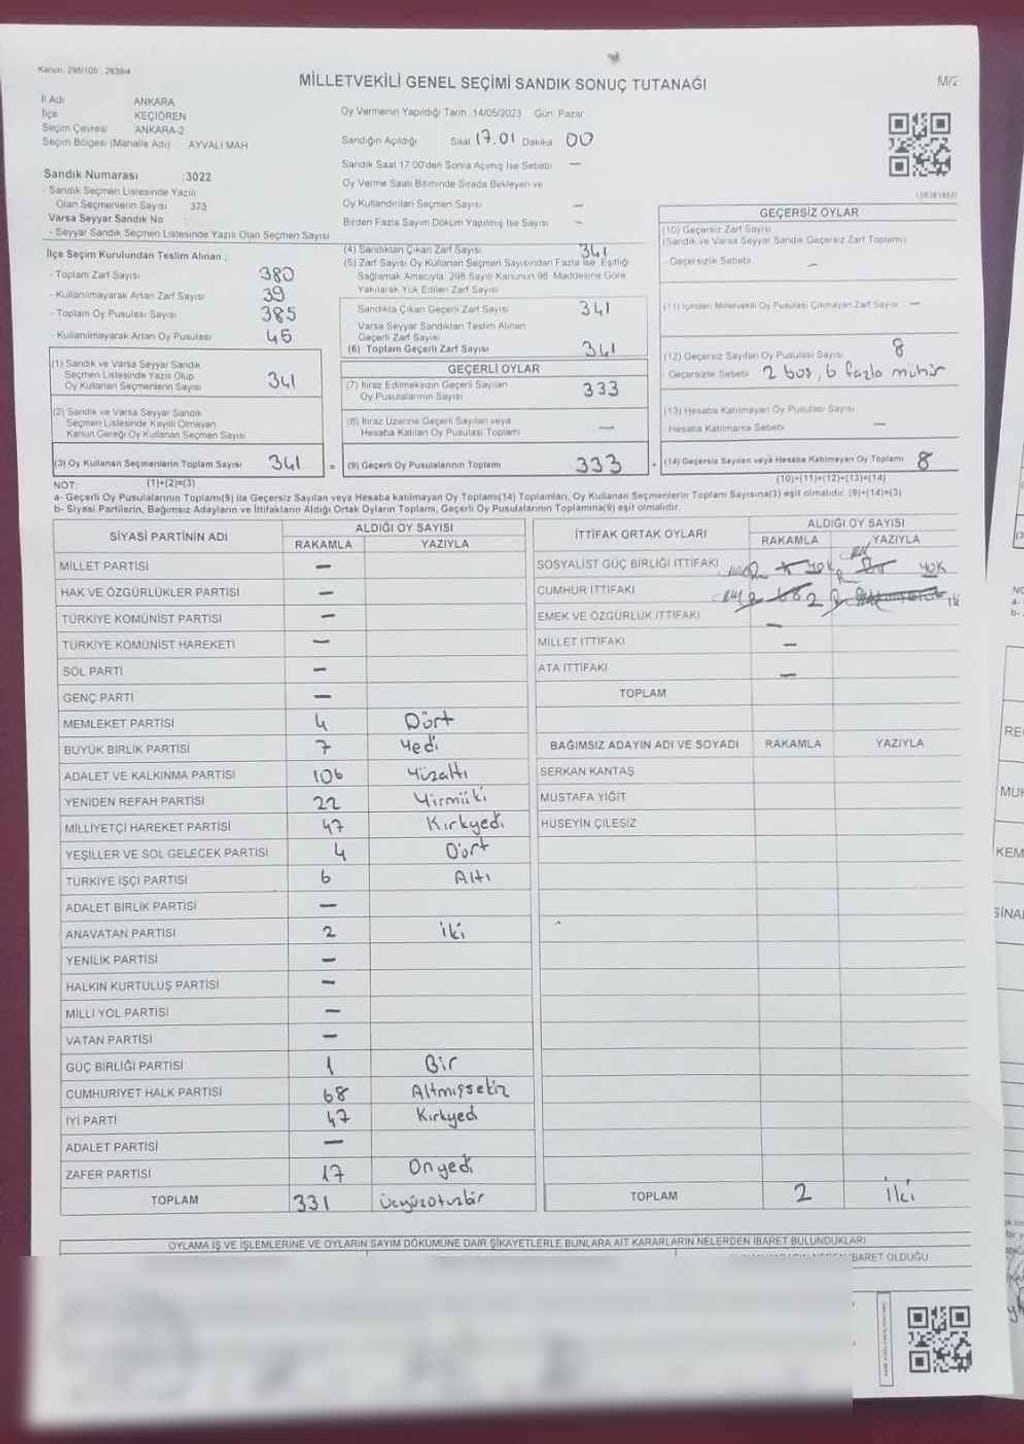 Kanun: 298/105 - 2839/4
MİLLETVEKİLİ GENEL SEÇİMİ SANDIK SONUÇ TUTANAĞI
M/2
İl Adı ANKARA
İlçe KEÇİÖREN
Seçim Çevresi ANKARA-2
Seçim Bölgesi (Mahalle Adı) AYVALI MAH
Sandık Numarası :3022
- Sandık Seçmen Listesinde Yazılı
Olan Seçmenlerin Sayısı 373
Varsa Seyyar Sandık No
- Seyyar Sandık Seçmen Listesinde Yazılı Olan Seçmen Sayısı
Oy Vermenin Yapıldığı Tarih :14/05/2023 Gün: Pazar
Sandığın Açıldığı Saat 17.01 Dakika 00
Sandık Saat 17.00'den Sonra Açılmış İse Sebebi —
Oy Verme Saati Bitiminde Sırada Bekleyen ve
Oy Kullandırılan Seçmen Sayısı —
Birden Fazla Sayım Döküm Yapılmış İse Sayısı —
İlçe Seçim Kurulundan Teslim Alınan :
- Toplam Zarf Sayısı 380
- Kullanılmayarak Artan Zarf Sayısı 39
- Toplam Oy Pusulası Sayısı 385
- Kullanılmayarak Artan Oy Pusulası 45
(1) Sandık ve Varsa Seyyar Sandık
Seçmen Listesinde Yazılı Olup
Oy Kullanan Seçmenlerin Sayısı 341
(2) Sandık ve Varsa Seyyar Sandık
Seçmen Listesinde Kayıtlı Olmayan
Kanun Gereği Oy Kullanan Seçmen Sayısı
(3) Oy Kullanan Seçmenlerin Toplam Sayısı 341
(4) Sandıktan Çıkan Zarf Sayısı 341
(5) Zarf Sayısı Oy Kullanan Seçmen Sayısından Fazla İse Eşitliği
Sağlamak Amacıyla, 298 Sayılı Kanunun 98. Maddesine Göre
Yakılarak Yok Edilen Zarf Sayısı
Sandıkta Çıkan Geçerli Zarf Sayısı 341
Varsa Seyyar Sandıktan Teslim Alınan
Geçerli Zarf Sayısı
(6) Toplam Geçerli Zarf Sayısı 341
GEÇERLİ OYLAR
(7) İtiraz Edilmeksizin Geçerli Sayılan
Oy Pusulalarının Sayısı 333
(8) İtiraz Üzerine Geçerli Sayılan veya
Hesaba Katılan Oy Pusulası Toplamı —
= (9) Geçerli Oy Pusulalarının Toplamı 333
GEÇERSİZ OYLAR
(10) Geçersiz Zarf Sayısı
(Sandık ve Varsa Seyyar Sandık Geçersiz Zarf Toplamı)
- Geçersizlik Sebebi —
(11) İçinden Milletvekili Oy Pusulası Çıkmayan Zarf Sayısı —
(12) Geçersiz Sayılan Oy Pusulası Sayısı 8
Geçersizlik Sebebi 2 boş, 6 fazla mühür
(13) Hesaba Katılmayan Oy Pusulası Sayısı
Hesaba Katılmama Sebebi —
+ (14) Geçersiz Sayılan veya Hesaba Katılmayan Oy Toplamı 8
NOT: (1)+(2)=(3) (10)+(11)+(12)+(13)=(14)
a- Geçerli Oy Pusulalarının Toplamı(9) ile Geçersiz Sayılan veya Hesaba katılmayan Oy Toplamı(14) Toplamları, Oy Kullanan Seçmenlerin Toplam Sayısına(3) eşit olmalıdır. (9)+(14)=(3)
b- Siyasi Partilerin, Bağımsız Adayların ve İttifakların Aldığı Ortak Oyların Toplamı, Geçerli Oy Pusulalarının Toplamına(9) eşit olmalıdır.
SİYASİ PARTİNİN ADI ALDIĞI OY SAYISI
RAKAMLA YAZIYLA
MİLLET PARTİSİ —
HAK VE ÖZGÜRLÜKLER PARTİSİ —
TÜRKİYE KOMÜNİST PARTİSİ —
TÜRKİYE KOMÜNİST HAREKETİ —
SOL PARTİ —
GENÇ PARTİ —
MEMLEKET PARTİSİ 4 Dört
BÜYÜK BİRLİK PARTİSİ 7 Yedi
ADALET VE KALKINMA PARTİSİ 106 Yüzaltı
YENİDEN REFAH PARTİSİ 22 Yirmiiki
MİLLİYETÇİ HAREKET PARTİSİ 47 Kırkyedi
YEŞİLLER VE SOL GELECEK PARTİSİ 4 Dört
TÜRKİYE İŞÇİ PARTİSİ 6 Altı
ADALET BİRLİK PARTİSİ —
ANAVATAN PARTİSİ 2 iki
YENİLİK PARTİSİ —
HALKIN KURTULUŞ PARTİSİ —
MİLLİ YOL PARTİSİ —
VATAN PARTİSİ —
GÜÇ BİRLİĞİ PARTİSİ 1 Bir
CUMHURİYET HALK PARTİSİ 68 Altmışsekiz
İYİ PARTİ 47 Kırkyedi
ADALET PARTİSİ —
ZAFER PARTİSİ 17 Onyedi
TOPLAM 331 üçyüzotuzbir
İTTİFAK ORTAK OYLARI ALDIĞI OY SAYISI
RAKAMLA YAZIYLA
SOSYALİST GÜÇ BİRLİĞİ İTTİFAKI YOK
CUMHUR İTTİFAKI 2
EMEK VE ÖZGÜRLÜK İTTİFAKI —
MİLLET İTTİFAKI —
ATA İTTİFAKI —
TOPLAM
BAĞIMSIZ ADAYIN ADI VE SOYADI RAKAMLA YAZIYLA
SERKAN KANTAŞ
MUSTAFA YİĞİT
HÜSEYİN ÇİLESİZ
TOPLAM 2 iki
OYLAMA İŞ VE İŞLEMLERİNE VE OYLARIN SAYIM DÖKÜMÜNE DAİR ŞİKAYETLERLE BUNLARA AİT KARARLARIN NELERDEN İBARET BULUNDUKLARI
İBARET OLDUĞU